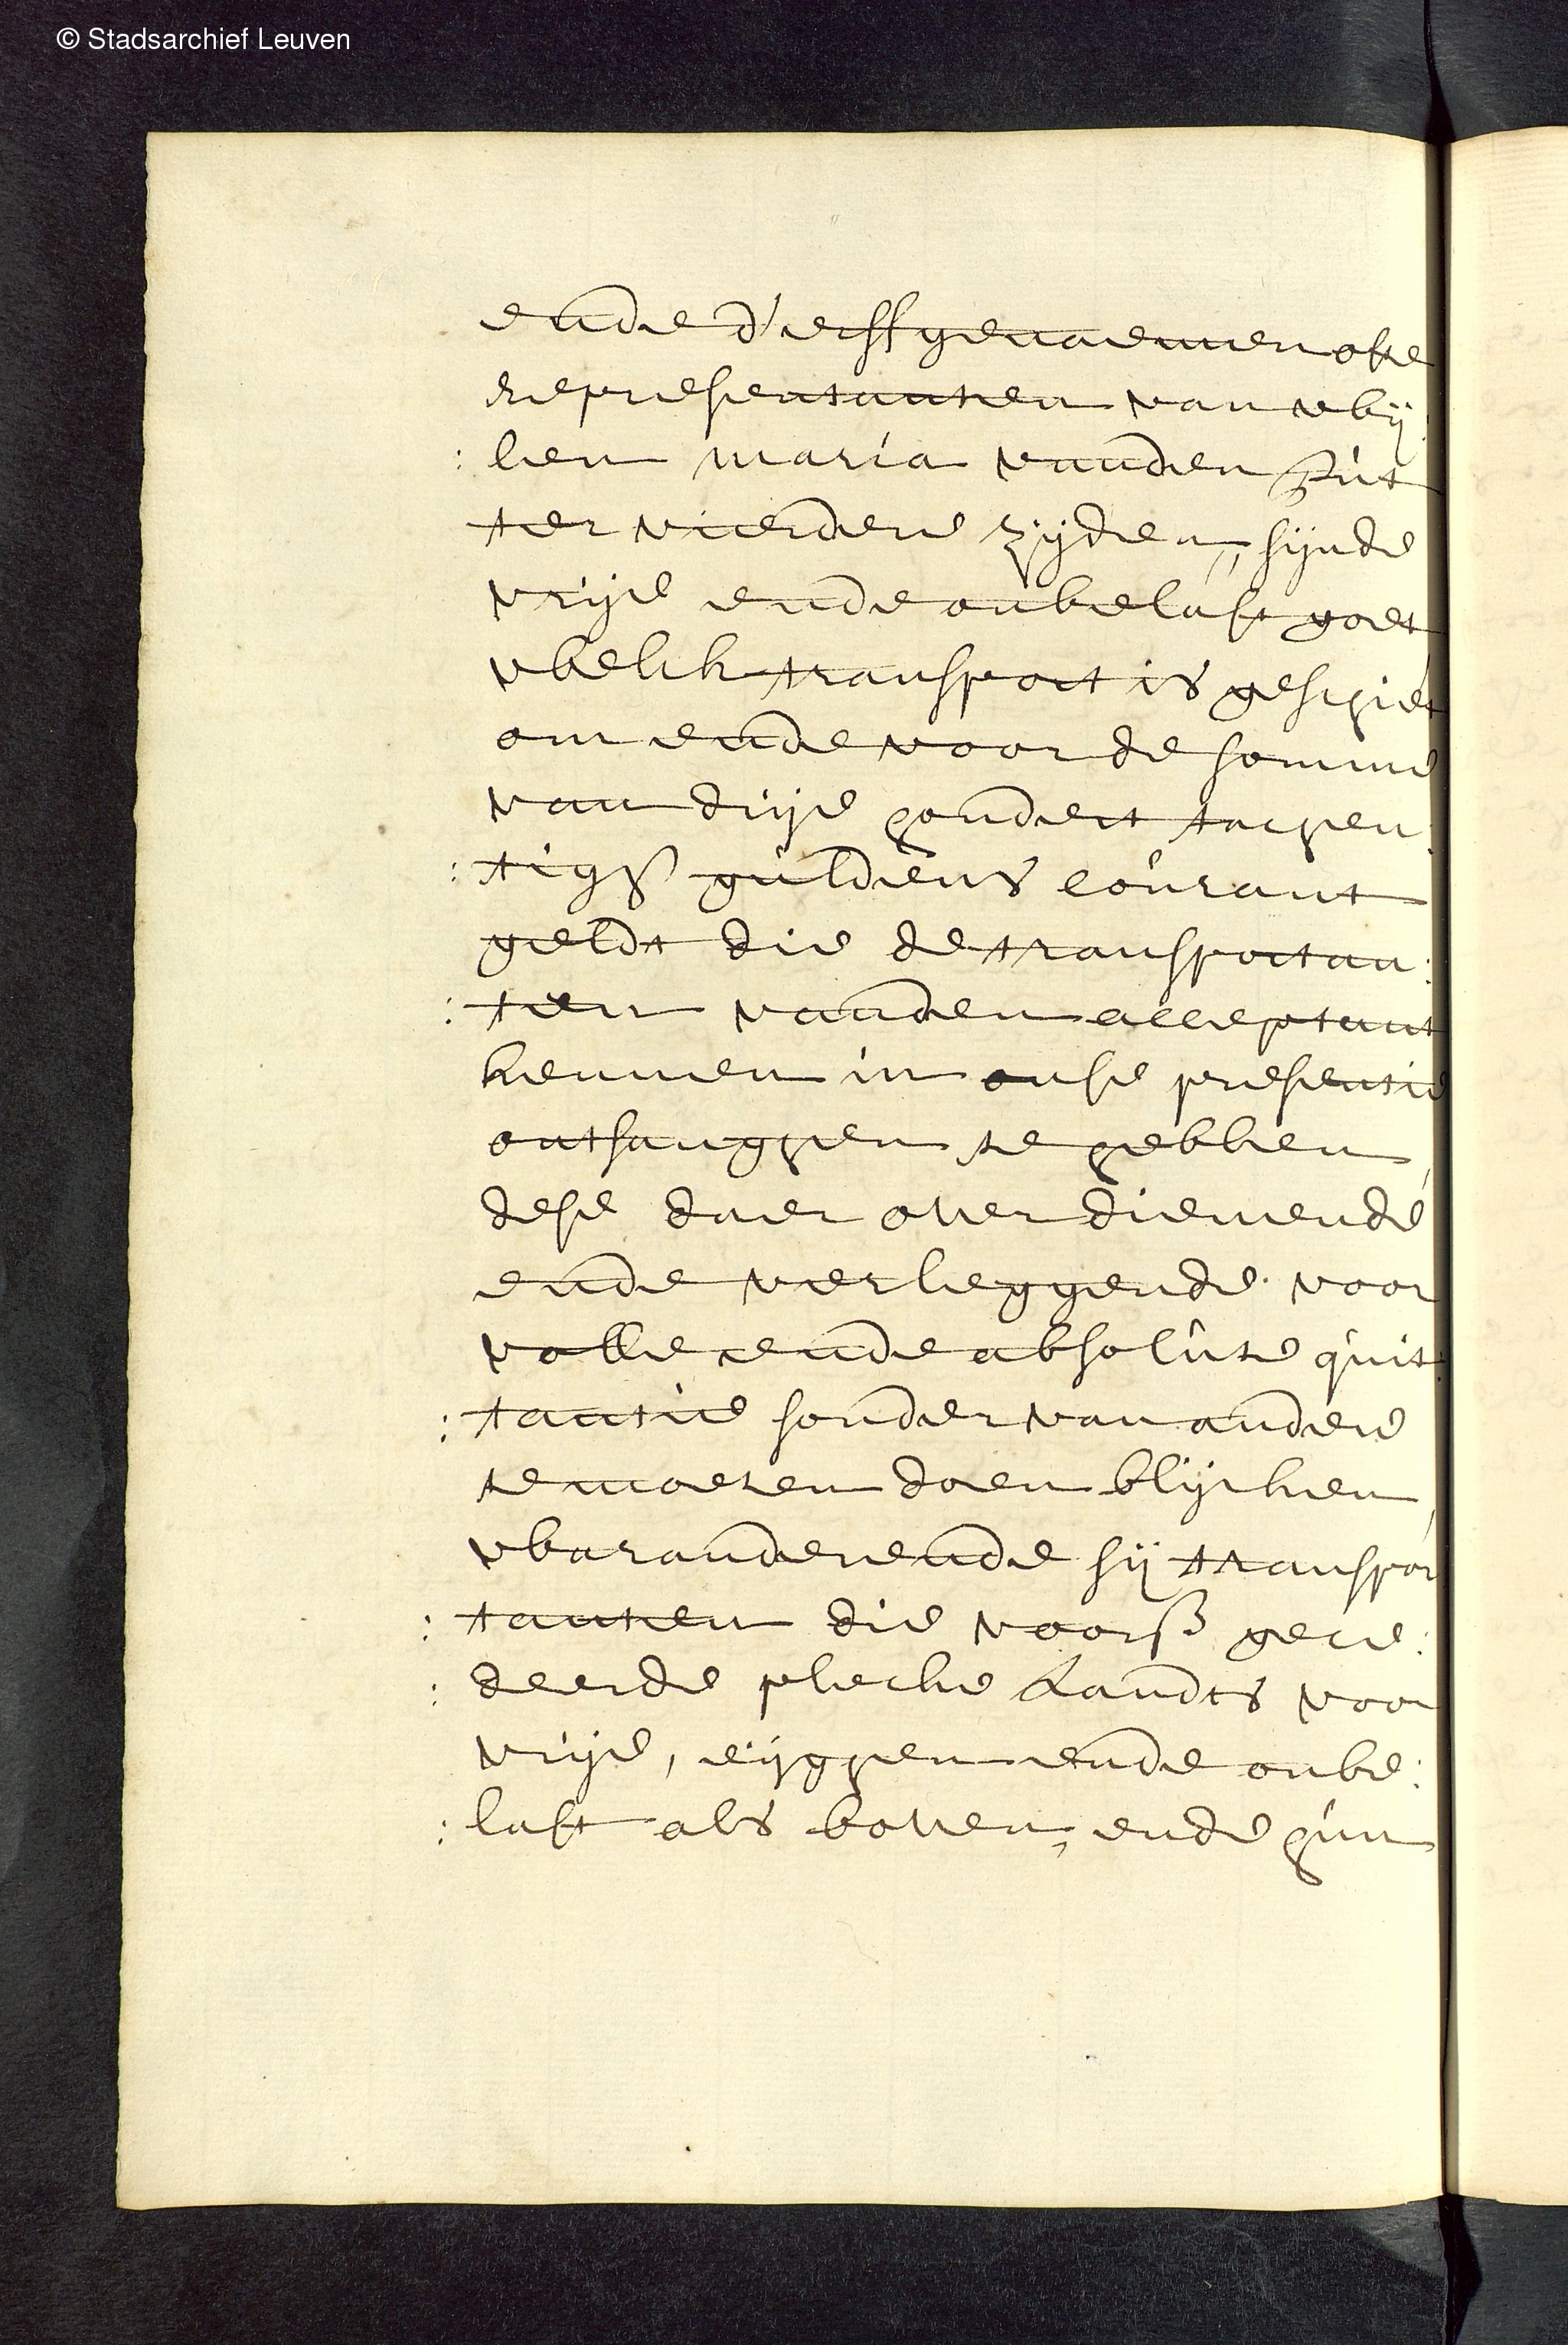 © Stadsarchief Leuven
ende d'erffgenaemen ofte
representanten van wbij:
: len maria vanden Put
ter vierdere zijden, sijnde
vrije ende onbelast goet
wbelck transport is geschiet
om ende voor de somme
van drije hondert tachen:
: tigh guldens courant
geldt die de transportan:
: ten vanden acceptant
kennen in onse presentie
ontfanghen te hebben,
dese daer over dienende
ende verleggende voor
volle ende absolute quit:
: tantie sonder van andere
te moeten doen blijcken,
wbaranderende sij transpor
: tanten die voors gece:
: deerde plecke Landts voor
vrije, eijghen ende onbe:
: last als boven, ende hun